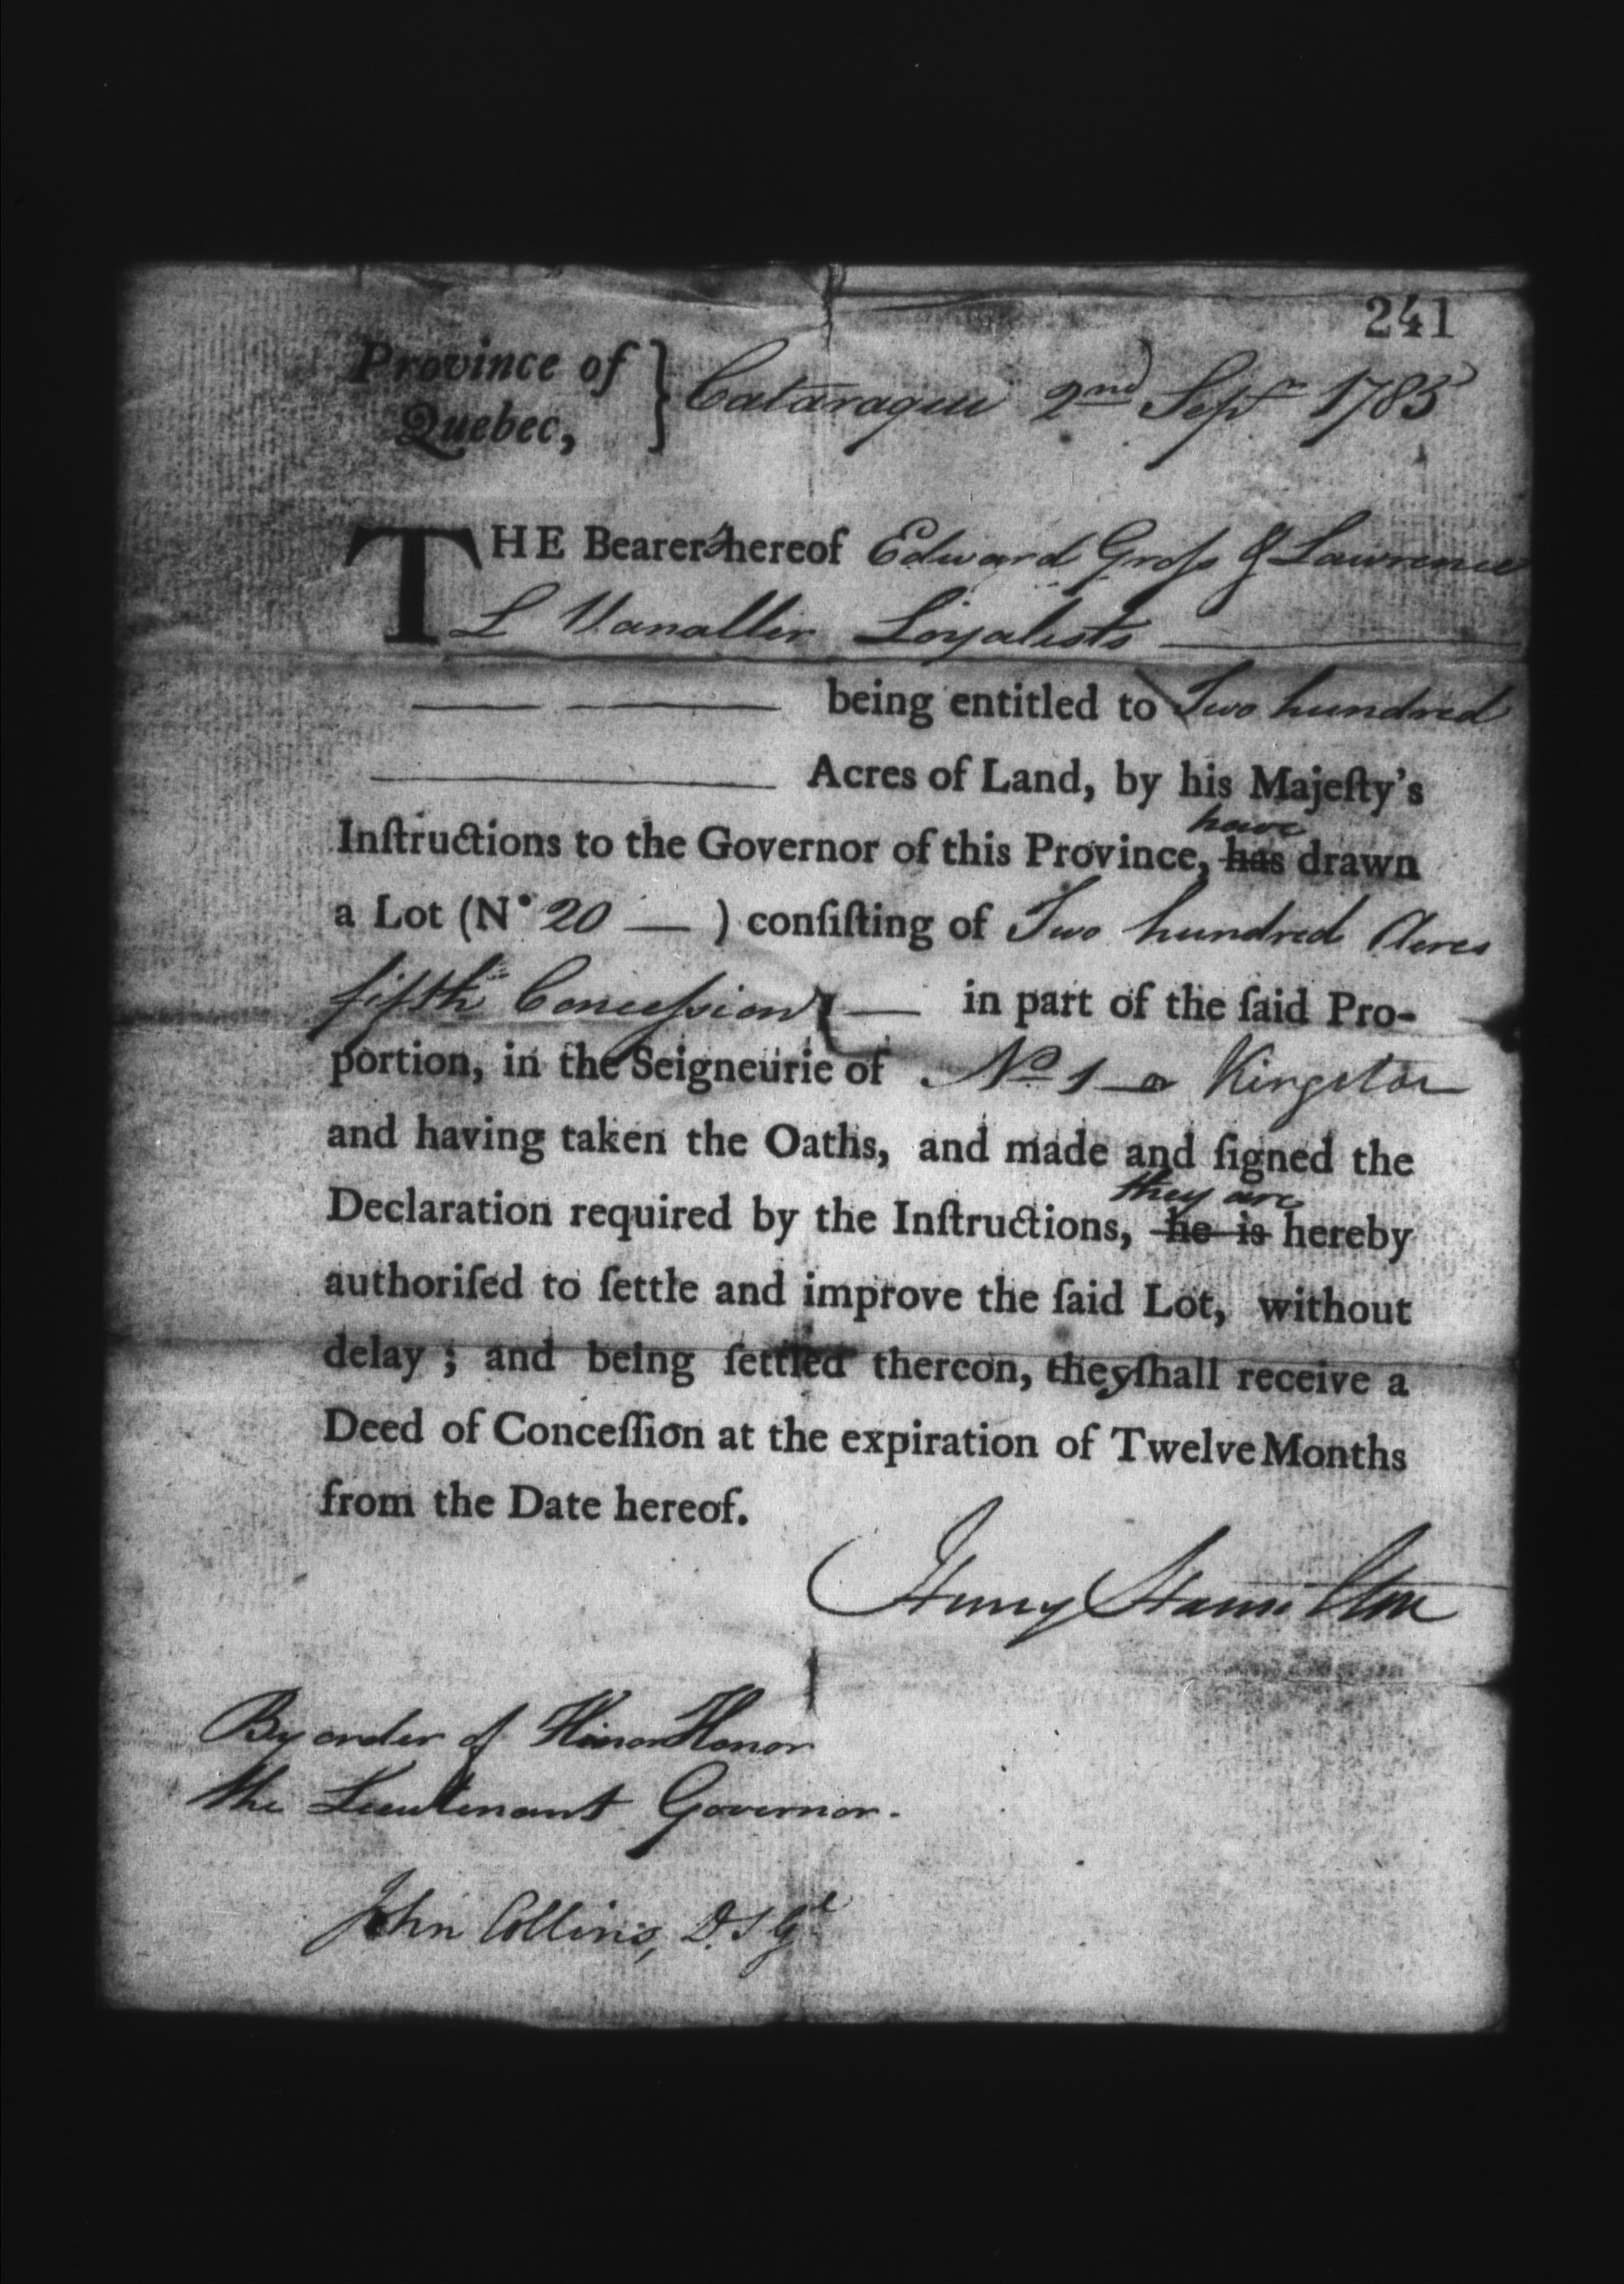 241
Province of } Cataraqui 2nd Sepr 1785
Quebec,
THE Bearers hereof Edward Groſs & Lawrence
L Vanaller Loyalists
being entitled to Two hundred
Acres of Land, by his Majeſty's
have
Inſtructions to the Governor of this Province, has drawn
a Lot (N° 20 — ) conſiſting of Two hundred Acres
fifth Conceſsion — in part of the ſaid Pro-
portion, in the Seigneurie of No 1 — or Kingston
and having taken the Oaths, and made and ſigned the
they are
Declaration required by the Inſtructions, he is hereby
authoriſed to ſettle and improve the ſaid Lot, without
delay ; and being ſettled thereon, they ſhall receive a
Deed of Conceſſion at the expiration of Twelve Months
from the Date hereof.
Henry Hamilton
By order of Honor
the Lieutenant Governor.
John Collins, D. S Gl